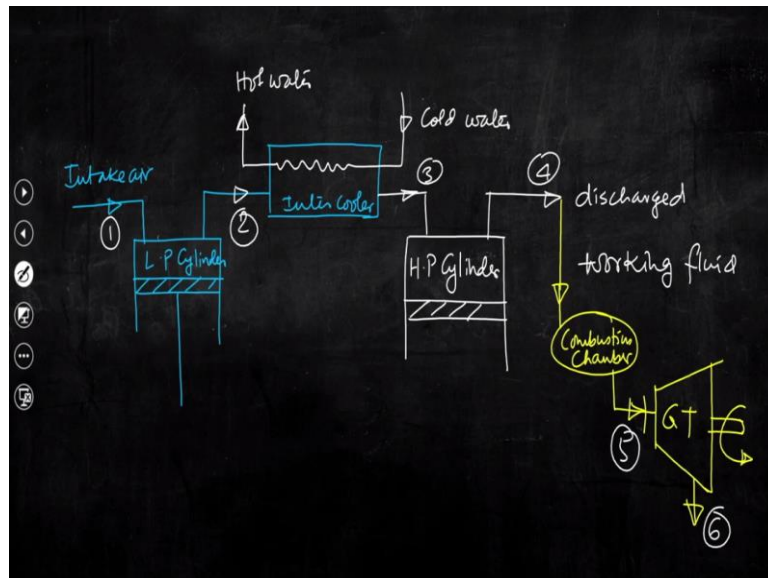 Hot water
Cold water
Intake air
1
2
Inter cooler
3
4
discharged
working fluid
L.P Cylinder
H.P Cylinder
Combustion
Chamber
GT
5
6